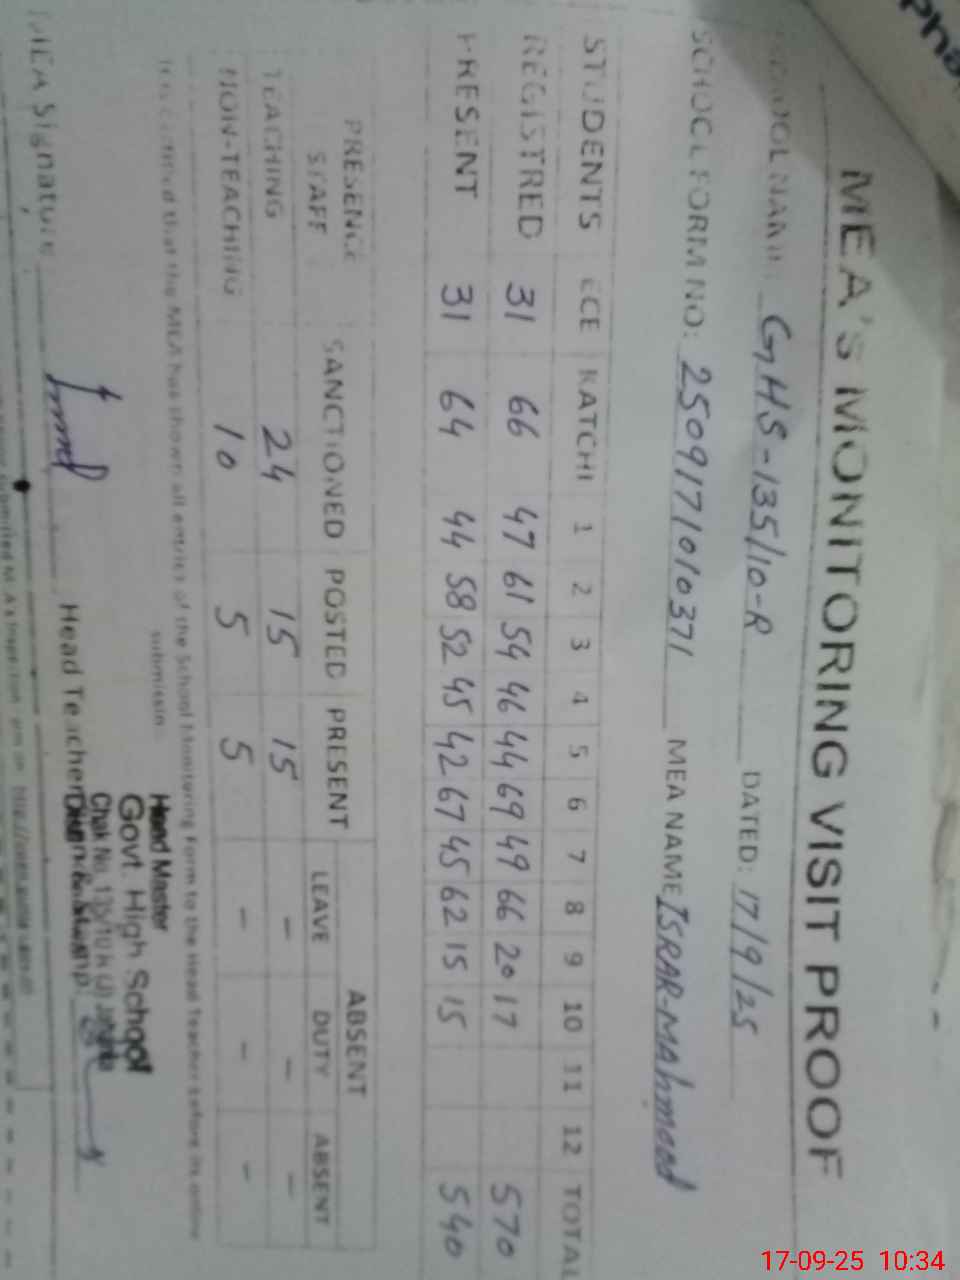 Pha
MEA'S MONITORING VISIT PROOF
SCHOOL NAME: GHS-135/10-R DATED: 17/9/25
SCHOOL FORM NO: 2509171010371 MEA NAME ISRAR-MAhmood
STUDENTS ECE KATCHI 1 2 3 4 5 6 7 8 9 10 11 12 TOTAL
REGISTRED 31 66 47 61 54 46 44 69 49 66 20 17 570
PRESENT 31 64 44 58 52 45 42 67 45 62 15 15 540
PRESENCE STAFF SANCTIONED POSTED PRESENT ABSENT
LEAVE DUTY ABSENT
TEACHING 24 15 15 - - -
NON-TEACHING 10 5 5 - - -
that the MEA has shown all entries of the School Monitoring Form to the Head Teacher before its online
submission
Head Master
Govt. High School
Chak No. 135/10
MEA Signature Head Teacher
17-09-25 10:34